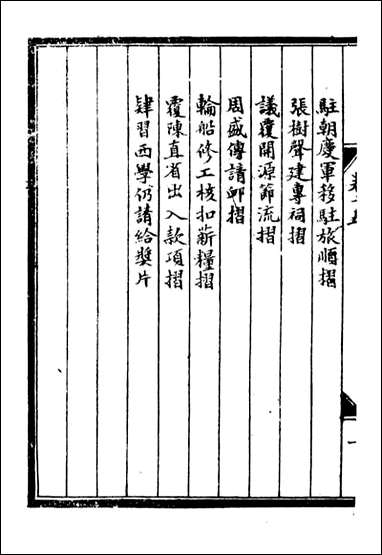 駐朝慶軍移駐旅順摺
張樹聲建專祠摺
議覆開源節流摺
周盛傳請卹摺
輪船修工核扣薪糧摺
覆陳直省出入款項摺
肄習西學仍請給獎片